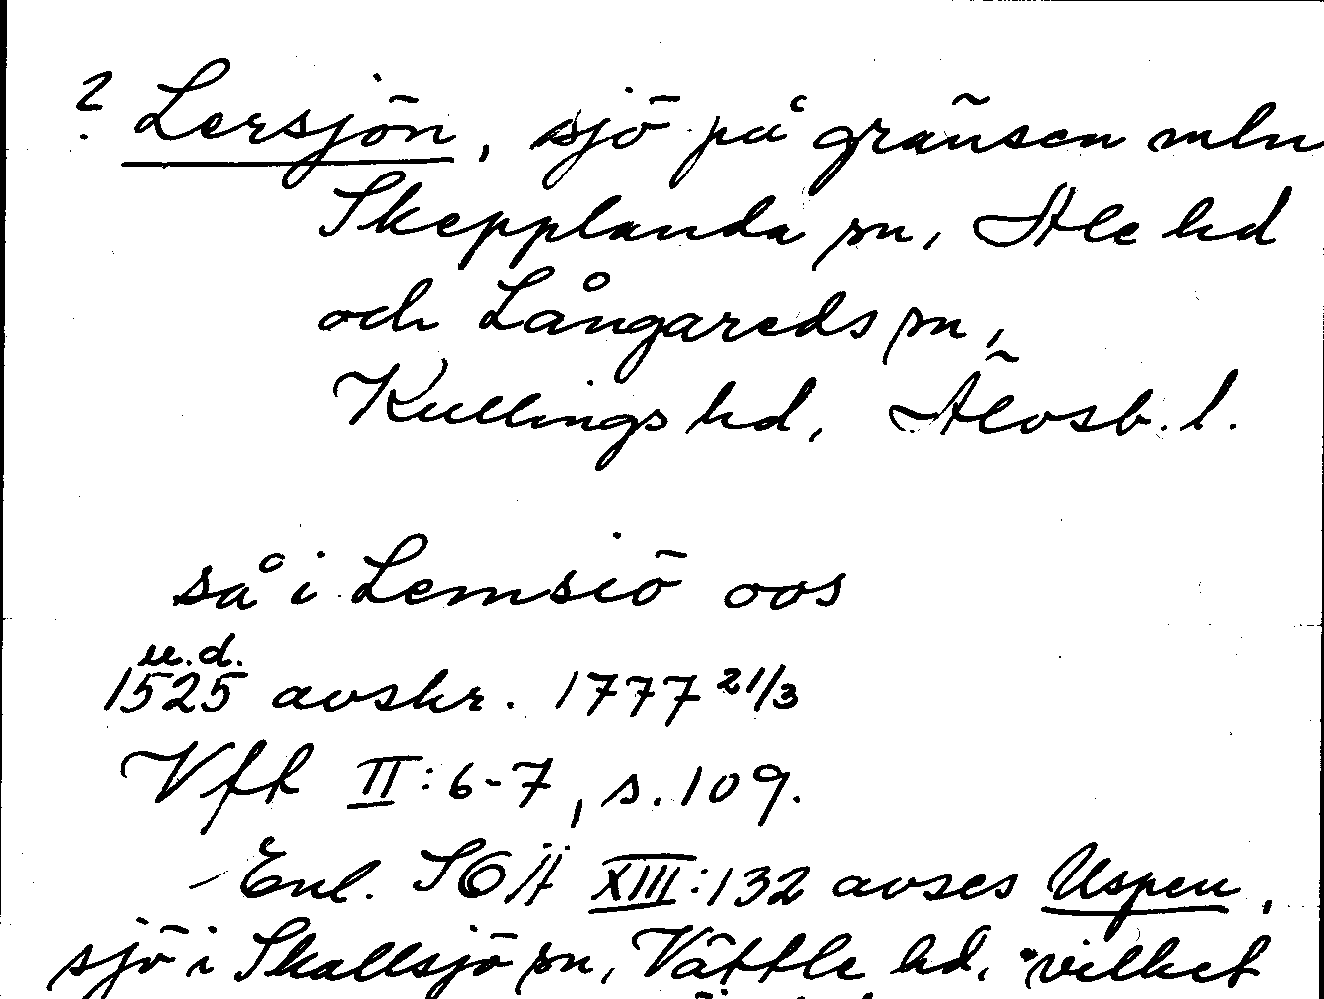 ? Lersjön, sjö på gränsen mln
Skepplanda sn, Ale hd
och Långareds sn,
Kullings hd, Älvsb. l.
så i Lemsiö oos
u.d.
1525 avskr. 1777 21/3
Vff II:6-7, s. 109.
- Enl. SOÄ XIII:132 avses Uspen,
sjö i Skallsjö sn, Vättle hd, "vilket